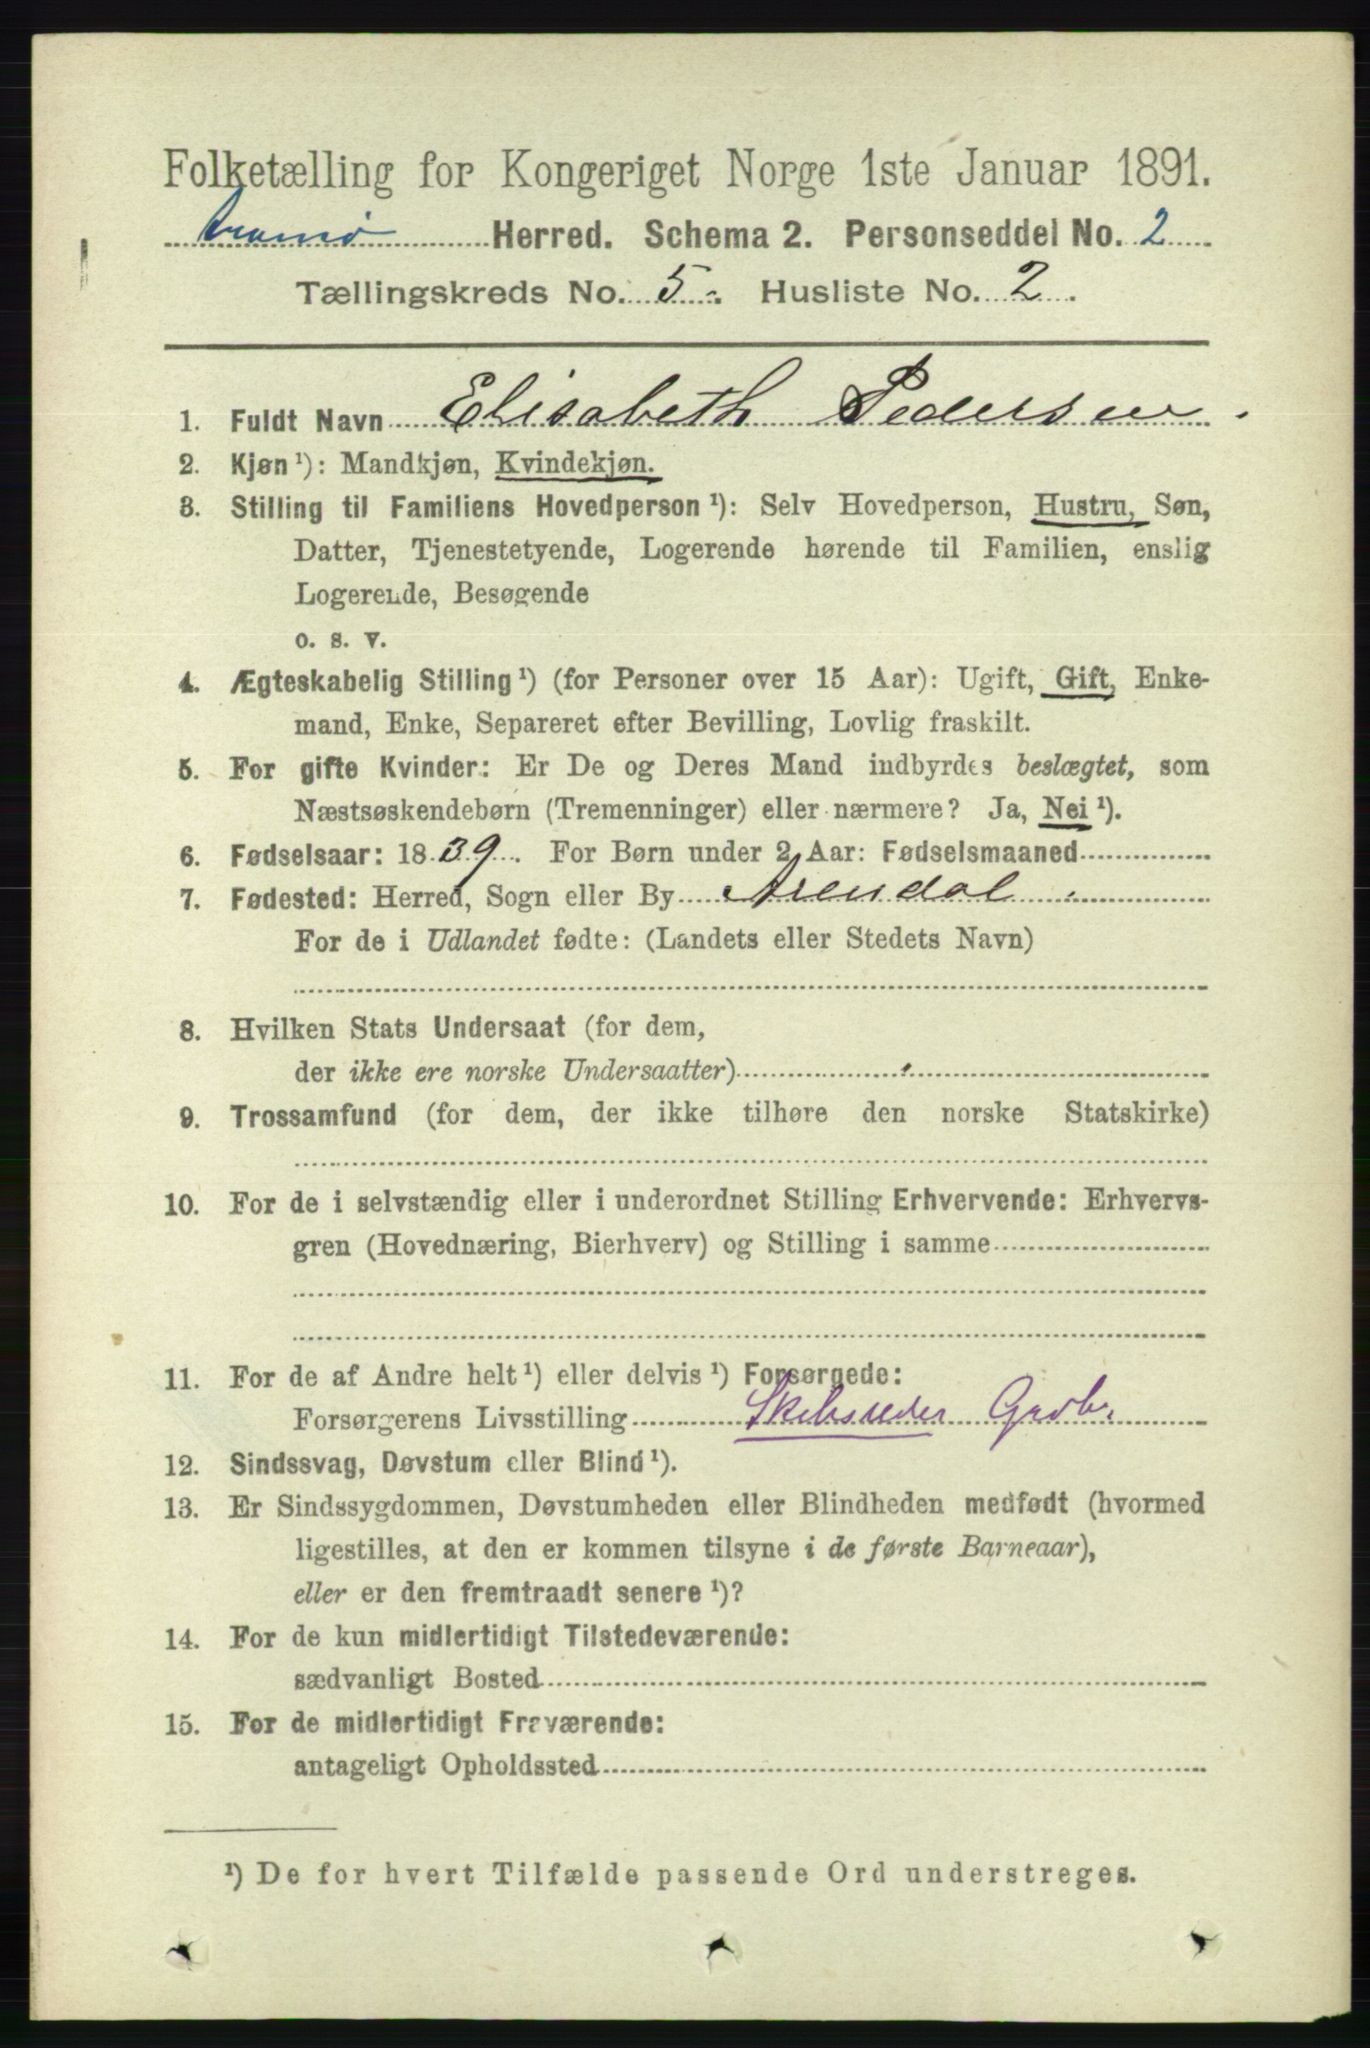 Folketælling for Kongeriget Norge 1ste Januar 1891.
Tromø Herred. Schema 2. Personseddel No. 2
Tællingskreds No. 5. Husliste No. 2.
1. Fuldt Navn Elisabeth Pedersen.
2. Kjøn ¹): Mandkjøn, Kvindekjøn.
3. Stilling til Familiens Hovedperson ¹): Selv Hovedperson, Hustru, Søn,
Datter, Tjenestetyende, Logerende hørende til Familien, enslig
Logerende, Besøgende
o. s. v.
4. Ægteskabelig Stilling ¹) (for Personer over 15 Aar): Ugift, Gift, Enke-
mand, Enke, Separeret efter Bevilling, Lovlig fraskilt.
5. For gifte Kvinder: Er De og Deres Mand indbyrdes beslægtet, som
Næstsøskendebørn (Tremenninger) eller nærmere? Ja, Nei ¹).
6. Fødselsaar: 1839. For Børn under 2 Aar: Fødselsmaaned
7. Fødested: Herred, Sogn eller By Arendal.
For de i Udlandet fødte: (Landets eller Stedets Navn)
8. Hvilken Stats Undersaat (for dem,
der ikke ere norske Undersaatter)
9. Trossamfund (for dem, der ikke tilhøre den norske Statskirke)
10. For de i selvstændig eller i underordnet Stilling Erhvervende: Erhvervs-
gren (Hovednæring, Bierhverv) og Stilling i samme
11. For de af Andre helt ¹) eller delvis ¹) Forsørgede:
Forsørgerens Livsstilling Skibsreder Grdb.
12. Sindssvag, Døvstum eller Blind ¹).
13. Er Sindssygdommen, Døvstumheden eller Blindheden medfødt (hvormed
ligestilles, at den er kommen tilsyne i de første Barneaar),
eller er den fremtraadt senere ¹)?
14. For de kun midlertidigt Tilstedeværende:
sædvanligt Bosted
15. For de midlertidigt Fraværende:
antageligt Opholdssted
¹) De for hvert Tilfælde passende Ord understreges.